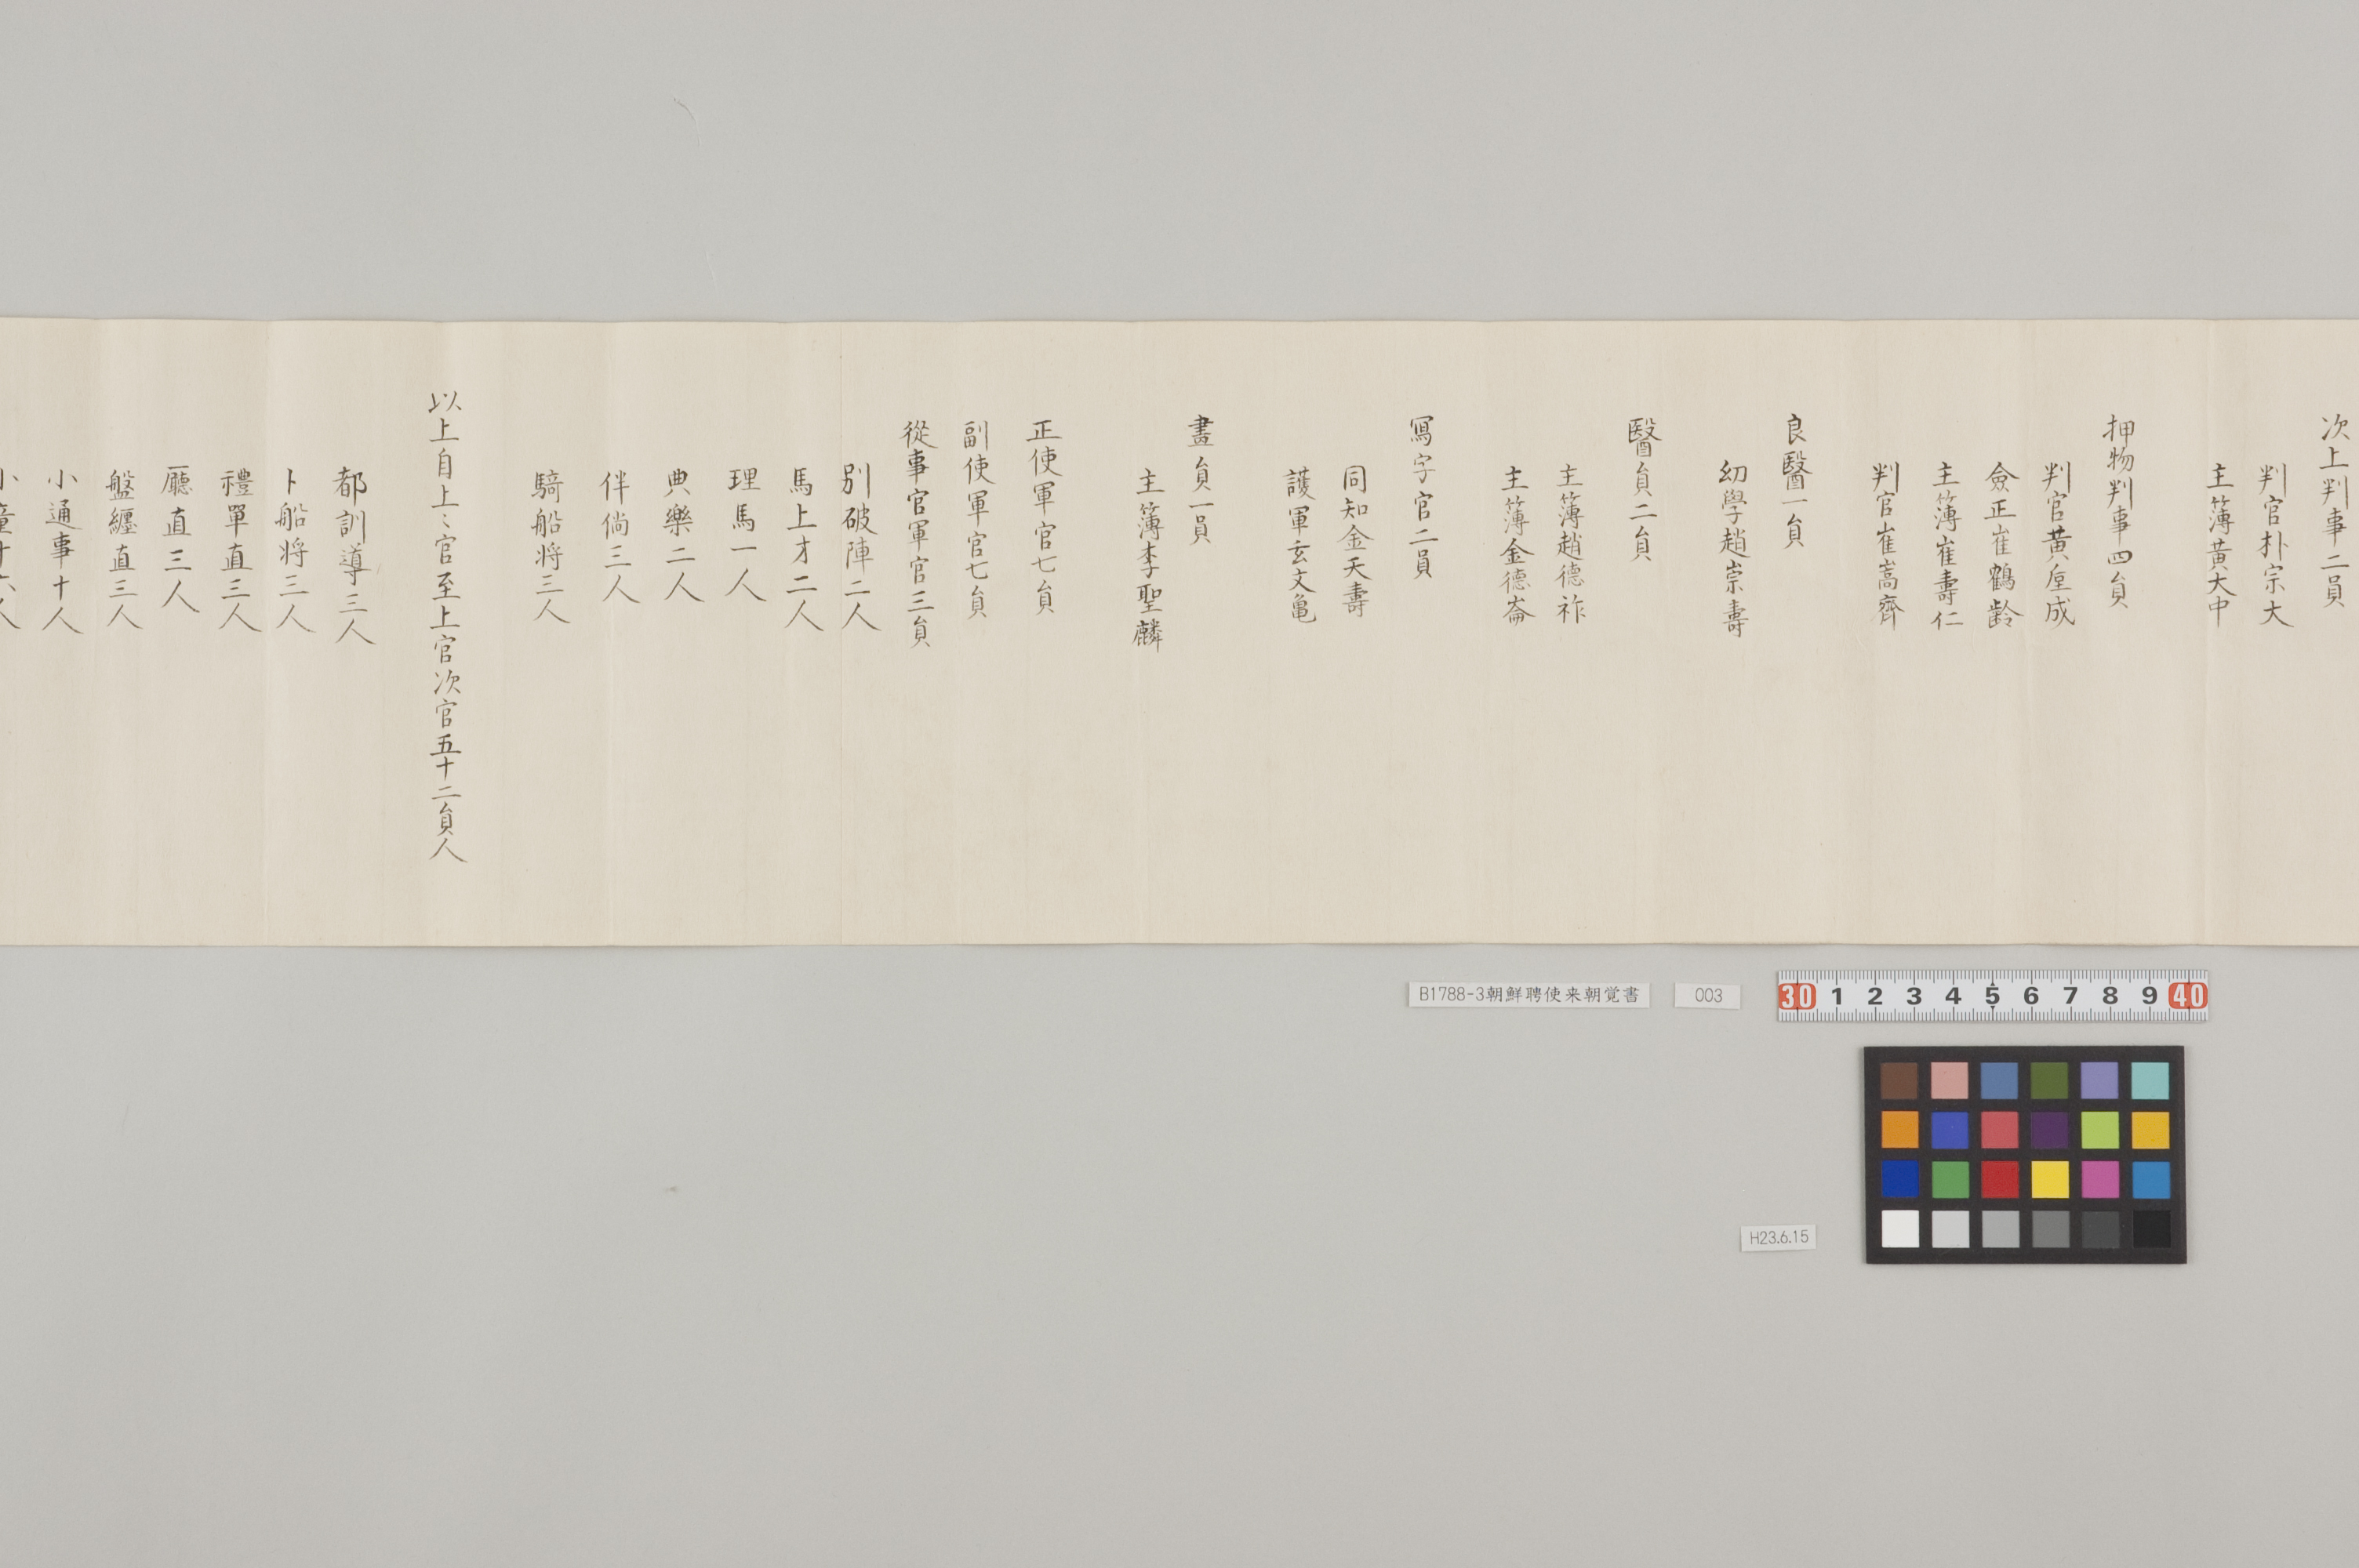 次上判事二員
判官朴宗大
主簿黃大中
押物判事四員
判官黄垕成
僉正崔鶴齡
主簿崔壽仁
判官崔嵩齊
良醫一員
幼學趙崇壽
醫員二員
主簿趙德祚
主簿金德崙
寫字官二員
同知金天壽
護軍玄文亀
畫員一員
主簿李聖麟
正使軍官七員
副使軍官七員
從事官軍官三員
別破陣二人
馬上才二人
理馬一人
典樂二人
伴倘三人
騎船将三人
以上自上〻官至上官次官五十二員人
都訓導三人
卜船将三人
禮單直三人
廳直三人
盤纏直三人
小通事十人
小童十六人
B1788-3朝鮮聘使来朝覚書
003
30 1 2 3 4 5 6 7 8 9 40
H23.6.15